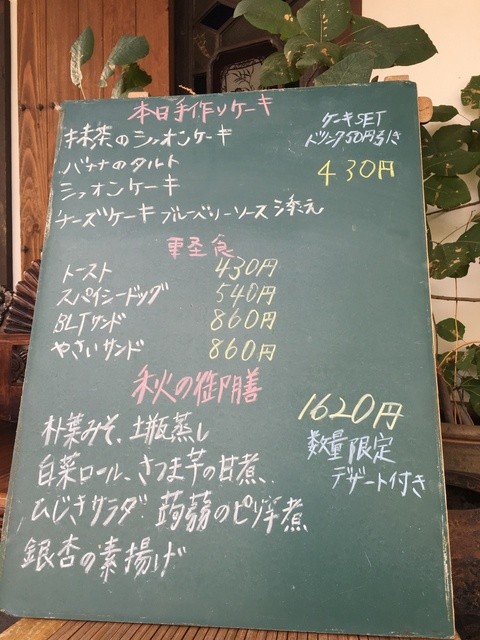 本日手作りケーキ
抹茶のシフォンケーキ
バナナのタルト
シフォンケーキ
チーズケーキ ブルーベリーソース添え
ケーキSET
ドリンク50円引き
430円
軽食
トースト 430円
スパイシードッグ 540円
BLTサンド 860円
やさいサンド 860円
秋の御膳
1620円
数量限定
デザート付き
朴葉みそ、土瓶蒸し
白菜ロール、さつま芋の甘煮、
ひじきサラダ 蒟蒻のピリ辛煮
銀杏の素揚げ